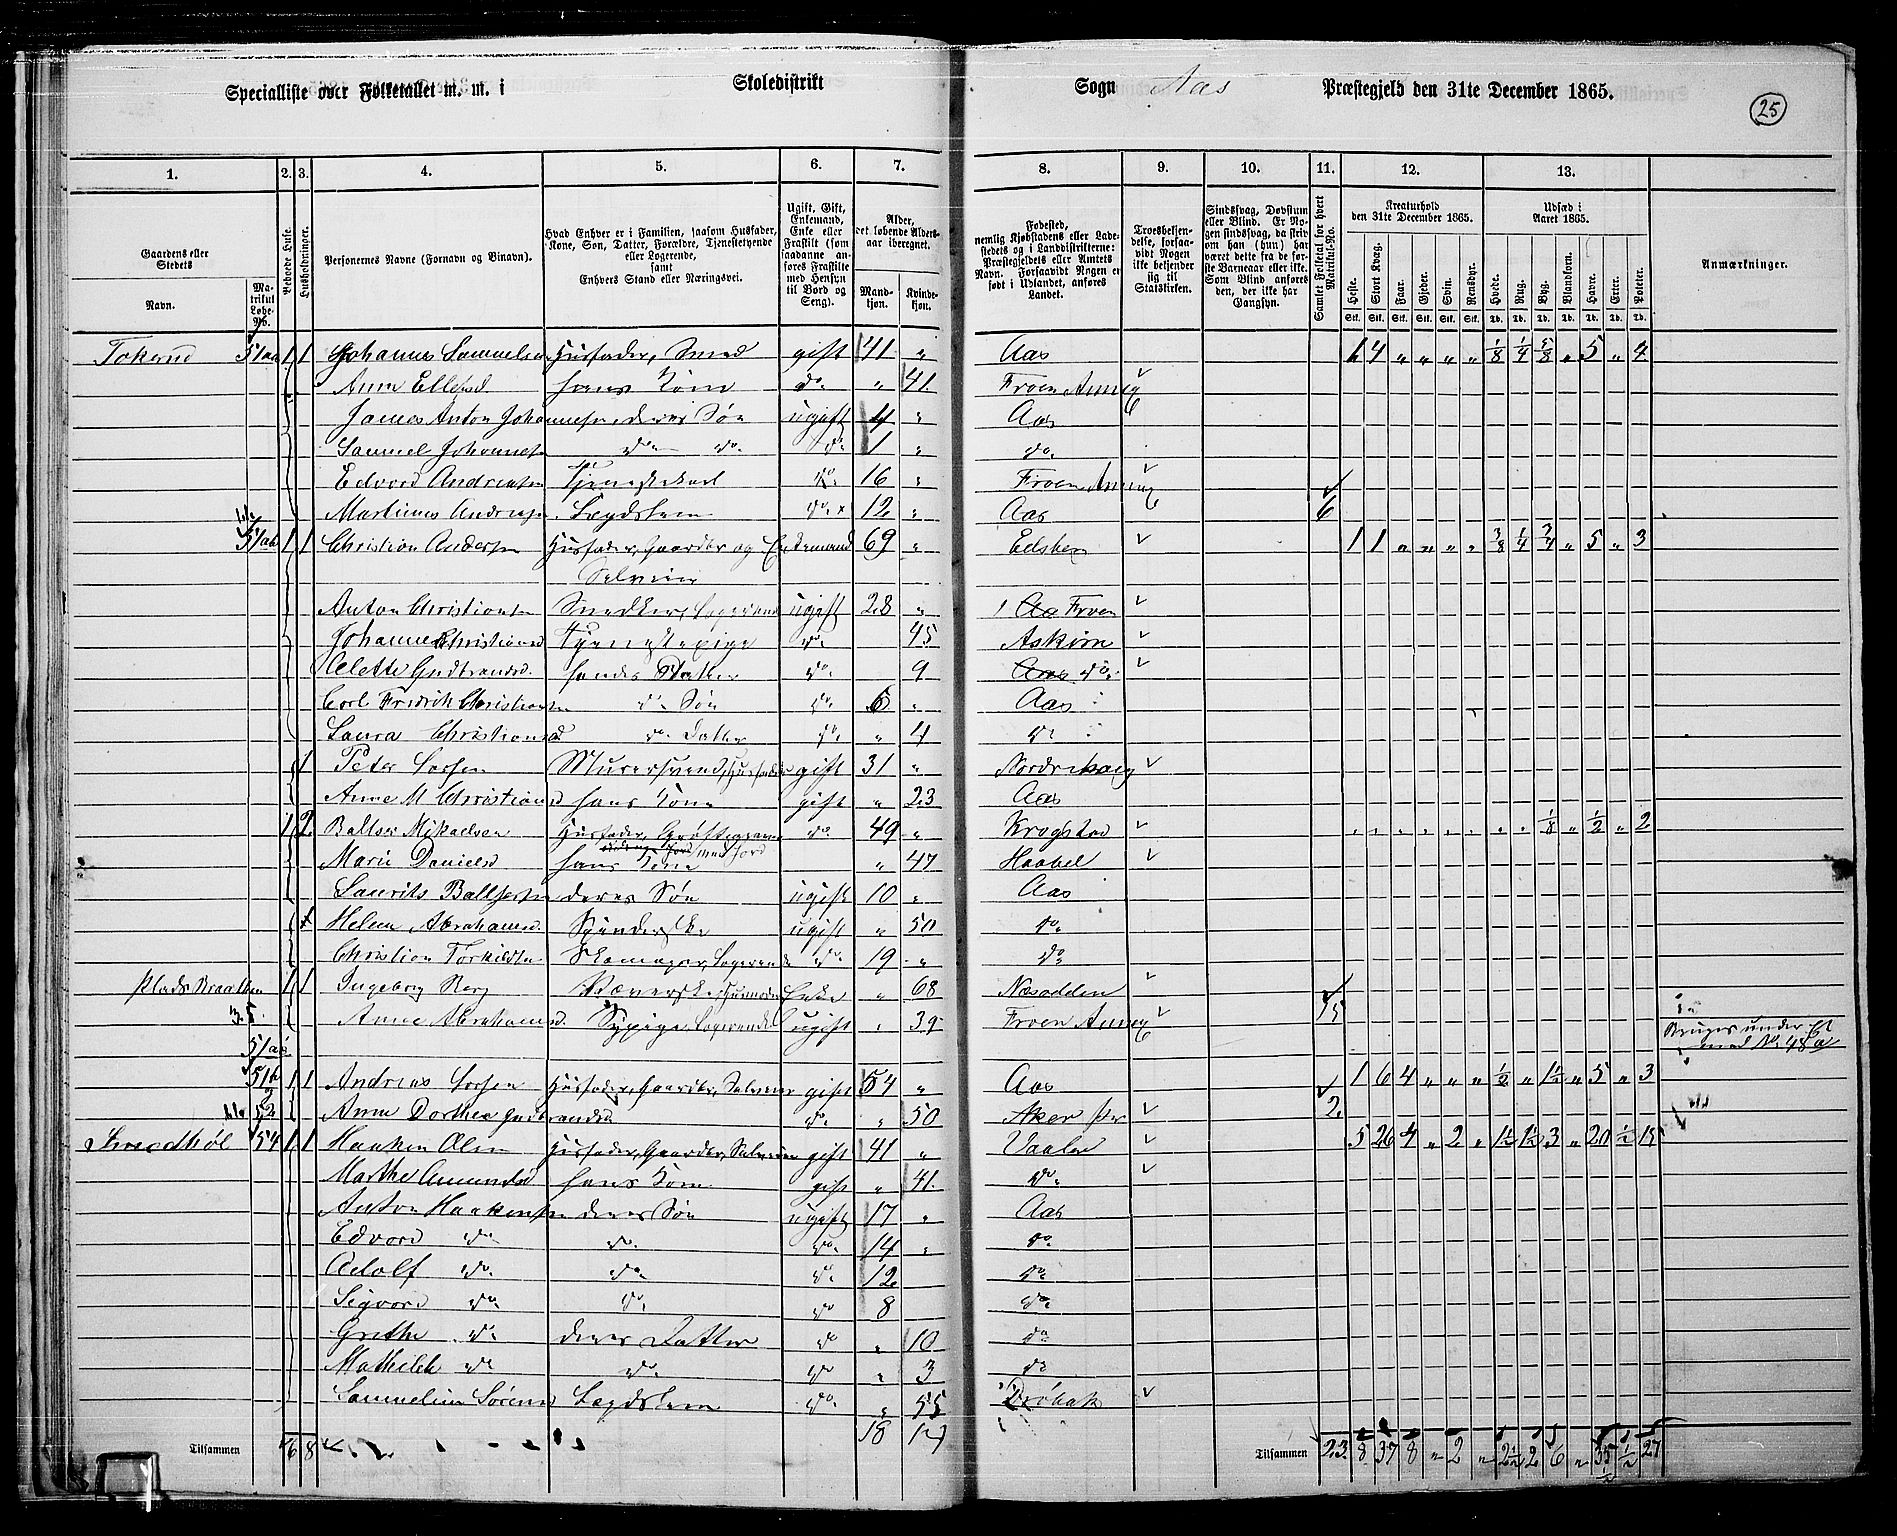 Specialliste over Folketallet m. m. i Skoledistrikt Sogn Aas Præstegjeld den 31te December 1865.
25
1. 2. 3. 4. 5. 6. 7. 8. 9. 10. 11. 12. 13.
Gaardens eller Stedets Navn. Matrikul Løbe-No. Beboede Huse. Husholdninger. Personernes Navne (Fornavn og Binavn).
Hvad Enhver er i Familien, saasom Husfader, Kone, Søn, Datter, Forældre, Tjenestetyende eller Logerende, samt Enhvers Stand eller Næringsvei.
Ugift, Gift, Enkemand, Enke eller Fraskilt (som saadanne anføres Fraskilte med Hensyn til Bord og Seng).
Alder, det løbende Aldersaar iberegnet. Mandkjøn. Kvindekjøn.
Fødested, nemlig Kjøbstadens eller Ladestedets og i Landdistrikterne: Præstegjeldets eller Amtets Navn. Forsaavidt Nogen er født i Udlandet, anføres Landet.
Troesbekjendelse, forsaavidt Nogen ikke bekjender sig til Statskirken.
Sindssvag, Døvstum eller Blind. Er Nogen sindssvag, da skrives om han (hun) har været dette fra de første Barneaar eller ikke. Som Blind anføres den, der ikke har Gangsyn.
Samlet Folketal for hvert Matrikul-No.
Kreaturhold den 31te December 1865. Heste. Stort Kvæg. Faar. Gjeder. Svin. Rensdyr.
Udsæd i Aaret 1865. Hvede. Rug. Byg. Blandkorn. Havre. Erter. Poteter.
Anmærkninger.
51aa 1 1 Johannes Samuelsen Husfader, Smed gift 41 „ Aas 1 4 „ „ „ „ 1/8 1/4 5/8 „ 5 „ 4
Anne hans Kone do „ 41 Froen Annex
James Anton Johannesen, deres Søn ugift 4 „ Aas
Samuel Johannes do do do 1 „ do
Edvard Andreasen Tjenestekarl do 16 „ Froen Annex
Martinus Andreasen Lægdslem do x 12 „ Aas 6
51ab 1 1 Christian Andersen Husfader, Gaardbr og Enkemand 69 „ Edsberg 1 1 „ „ „ „ 3/8 1/4 3/4 „ 5 „ 3
Selveier
Anton Christiansen Snedker, Logerende ugift 28 „ Aas Froen
Johanne Christiansd Tjenestepige do 45 Askim
Alette Gudbrandsd. hendes Datter do 9 Aas do
Carl Fredrik Christiansen do Søn do 6 „ Aas
Laura Christiansd do Datter do „ 4 do
1 Peter Larsen Murersvend, Husfader gift 31 „
Anne M Christiansd hans Kone gift „ 23 Aas
1 2 Baltser Mikaelsen Husfader, med Jord do 49 „ Krogstad 1/8 „ 1/2 „ 2
Marie Danielsd hans Kone „ 47 Haabel
Laurits Baltsersen deres Søn ugift 10 „ Aas
Helene Abrahamsd. Spinderske ugift „ 50 do
Christian Torkildsen Skomager, Logerende do 19 „ do
Plads Braathen 1 1 Ingeborg Væverske, Husmoder Enke „ 68 Næsodden 15
Anne Abrahamsd. Sypige, Logerende ugift „ 39 Froen Annex
Bruges under Et
med No 48a
51b 1 1 Andreas Larsen Husfader, Gaardbr, Selveier gift 54 „ Aas 1 6 4 „ „ „ 1/2 „ 1 1/2 „ 5 „ 3
52 Anne Dorthea Gudbrandsd do „ 50 Aker 2
Smedhøl 54 1 1 Haaken Olsen Husfader, Gaardbr, Selveier gift 41 „ Vaaler 5 26 4 „ 2 „ 1 1/2 1 1/2 3 „ 20 1/2 15
Marthe Amundsd hans Kone gift „ 41 do
Anton Haakensen deres Søn ugift 17 „ Aas
Edvard do do do 14 „ do
Adolf do do do 12 do
Sigvard do do do 8 do
Grethe do deres Datter do „ 10 do
Mathilde do do do „ 3 do
Samueline Sørensd Lægdslem do „ 55 Drøbak
Tilsammen 6 8 18 17 Tilsammen 23 8 37 8 „ 2 „ 2 1/2 2 6 „ 35 1/2 1/2 27